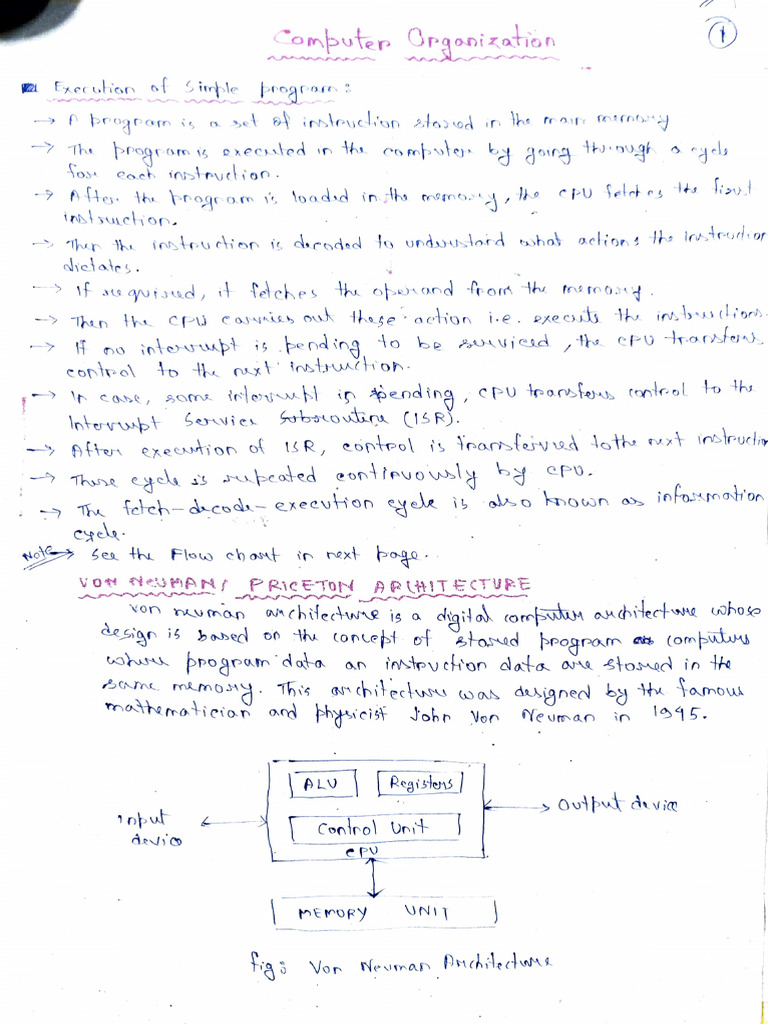 Computer Organization
1
Execution of Simple program:
→ A program is a set of instruction stored in the main memory
→ The program is executed in the computer by going through a cycle
for each instruction.
→ After the program is loaded in the memory, the CPU fetches the first
instruction.
→ Then the instruction is decoded to understand what actions the instruction
dictates.
→ If required, it fetches the operand from the memory.
→ Then the CPU carries out these action i.e. execute the instructions.
→ If no interrupt is pending to be serviced, the CPU transfers
control to the next instruction.
→ In case, some interrupt in pending, CPU transfers control to the
Interrupt Service Subroutine (ISR).
→ After execution of ISR, control is transferred to the next instruction
→ These cycle is repeated continuously by CPU.
→ The fetch-decode-execution cycle is also known as information
cycle.
Note → See the Flow chart in next page.
VON NEUMAN/ PRICETON ARCHITECTURE
Von neuman architecture is a digital computer architecture whose
design is based on the concept of stored program computers
where program data an instruction data are stored in the
same memory. This architecture was designed by the famous
mathematician and physicist John Von Neuman in 1945.
ALU Registers
Input device
Control Unit
Output device
CPU
MEMORY UNIT
fig: Von Neuman Architecture